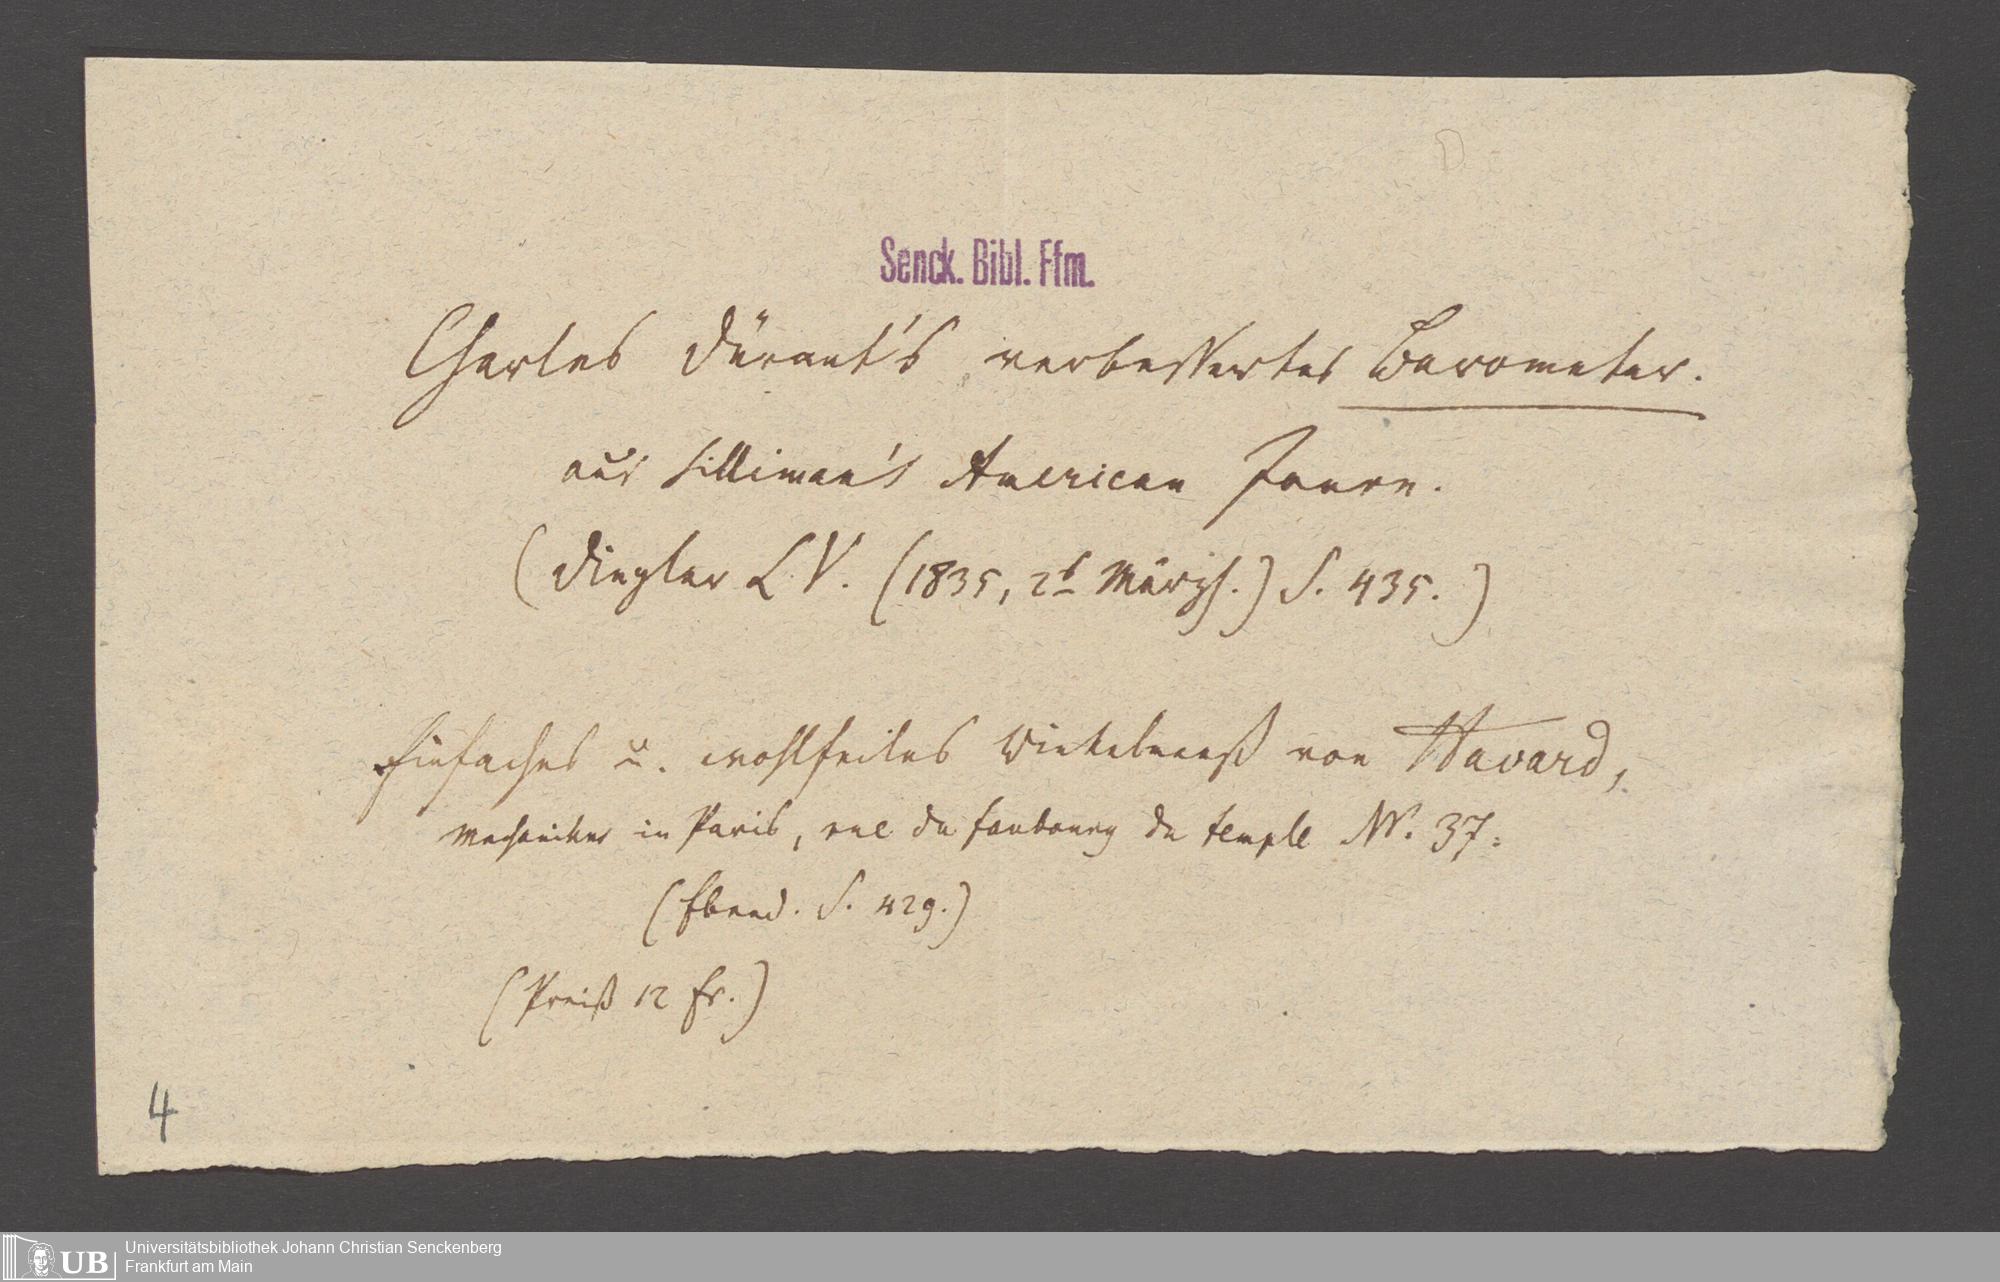 Senck. Bibl. Ffm.
Charles Dürant's verbessertes Barometer.
aus Silliman's American Journ.
(Dingler LV. (1835, 2s Märzh.) S. 435.)
Einfaches u. wohlfeiles Winkelmaaß von Havard,
Mechaniker in Paris, rue du faubourg du temple No. 37.
(Ebend. S. 429.)
(Preiß 12 fr.)
4
UB Universitätsbibliothek Johann Christian Senckenberg
Frankfurt am Main